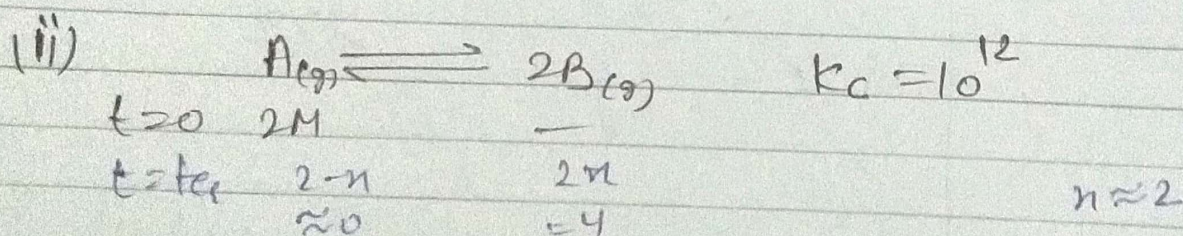 (ii) A(g) ⇌ 2B(g) Kc = 10^12
t=0 2M —
t=teq 2-x 2x x≈2
≈0 =4